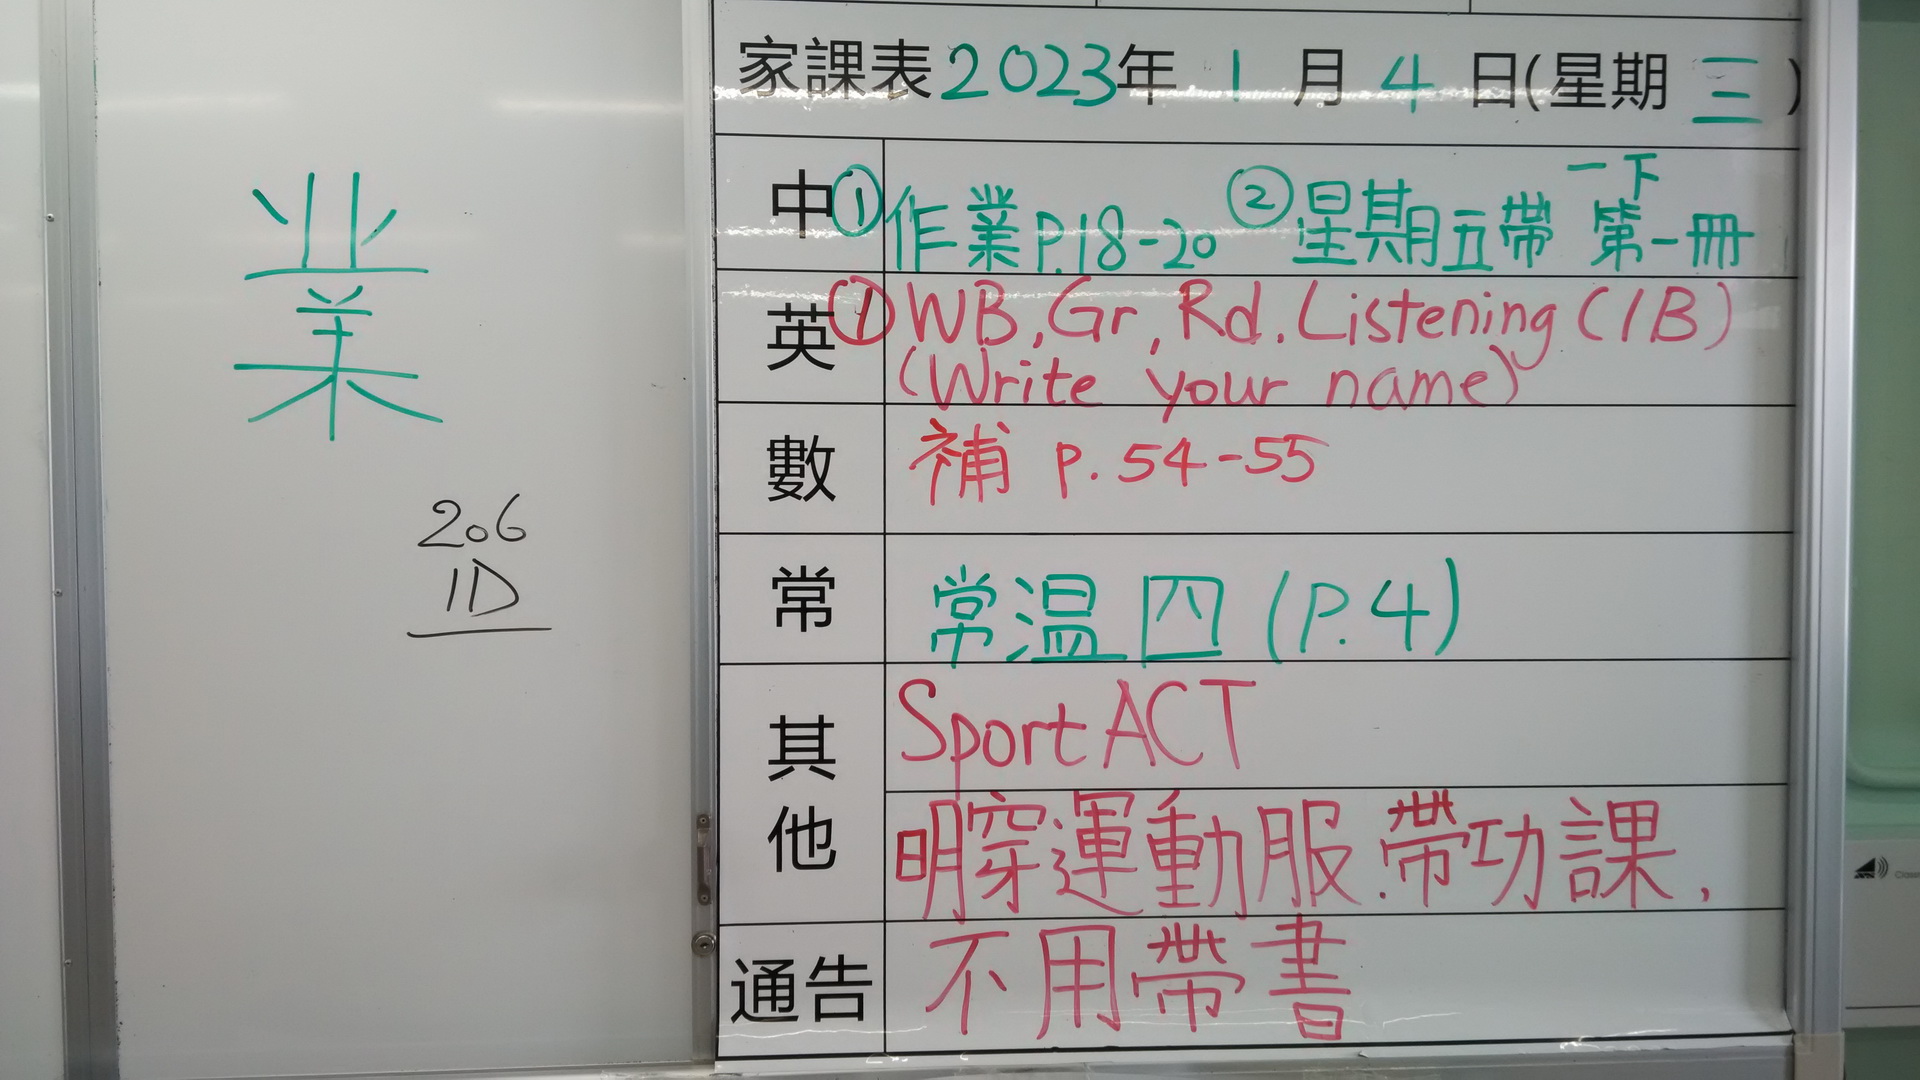 業
206
1D
家課表2023年 1 月 4 日(星期 三)
中 ①作業P.18-20 ②星期五帶 一下 第一冊
英 ①WB, Gr, Rd. Listening (1B)
(Write your name)
數 補 p. 54-55
常 常温四 (P.4)
其他 Sport ACT
明穿運動服.帶功課,
通告 不用帶書